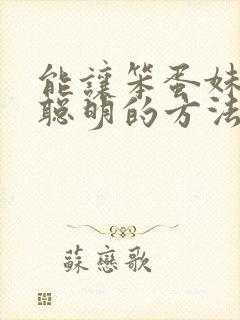 能讓笨蛋妹
聰明的方法
蘇戀歌